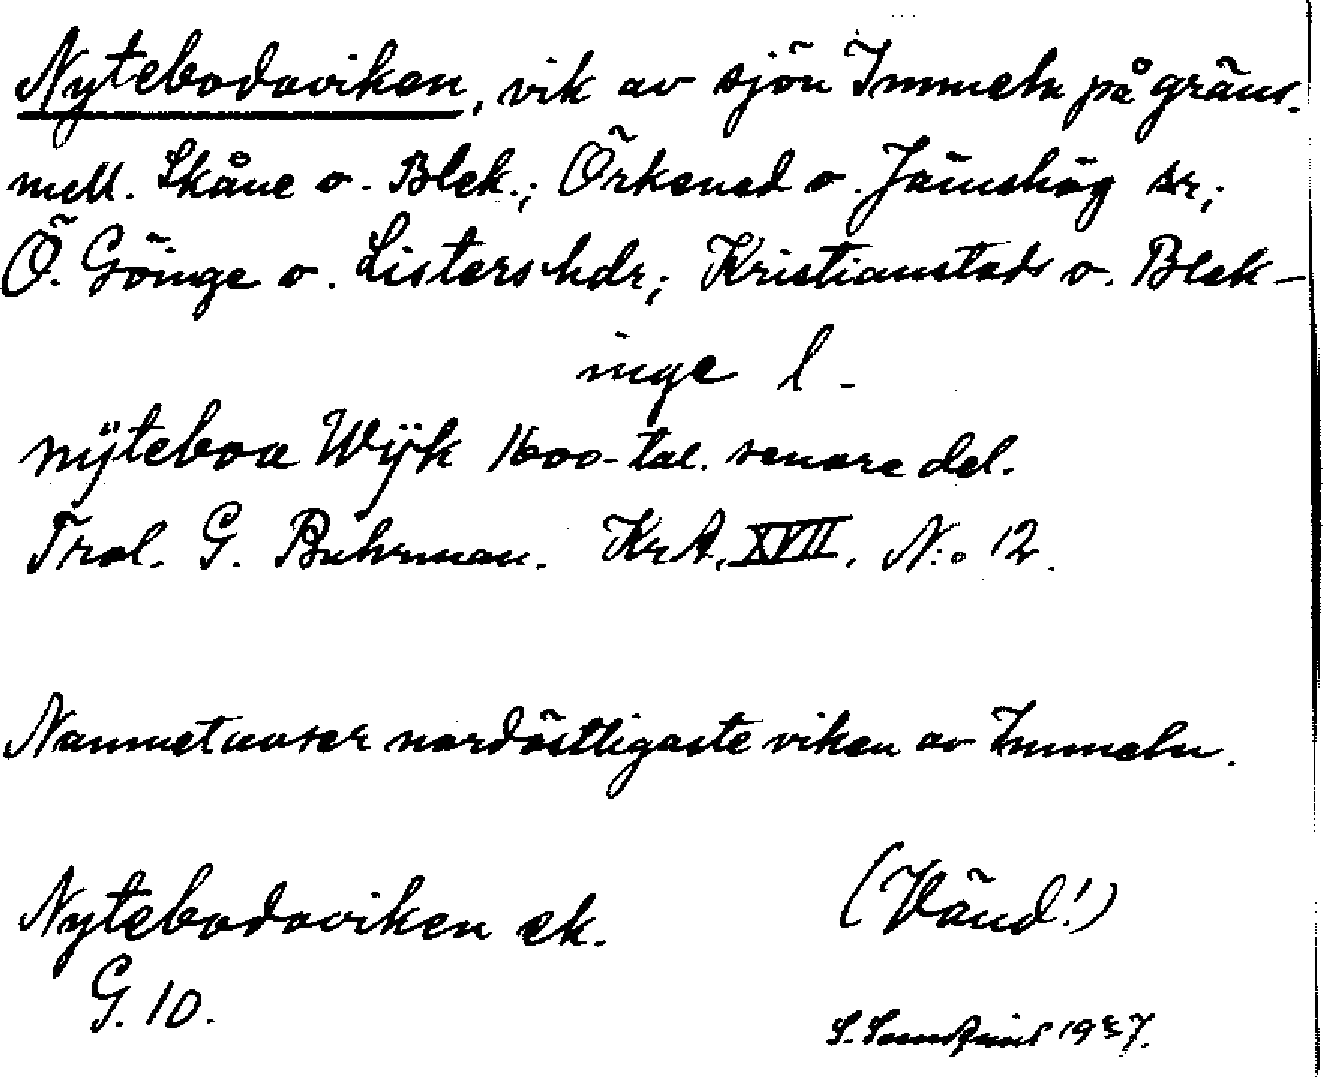 Nytebodaviken, vik av sjön Immeln på gräns.
mell. Skåne o. Blek.; Örkened o. Jämshög sr;
Ö. Göinge o. Listers hdr; Kristianstads o. Blek-
inge l.
nÿteboa Wÿk 1600-tal. senare del.
Trol. G. Buhrman. KrA. XVII. N:o 12.
Namnet avser nordöstligaste viken av Immeln.
Nytebodaviken ek. (Vänd!)
G. 10.
S. 19